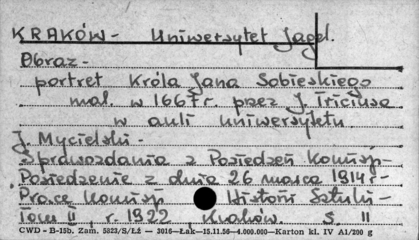 KRAKÓW - Uniwersytet Jagel.
Obraz -
portret Króla Jana Sobieskiego
mal. w 1667 r. przez J. Triciusa
w auli uniwersytetu.
J. Mycielski -
Sprawozdania z Posiedzeń Komisji -
Posiedzenie z dnia 26 marca 1914 r -
Prace Komisji Historii Sztuki -
Tom II, r. 1922, Kraków. s. II
CWD - B-15b. Zam. 5823/S/Łź - 3016-Łak-15.11.56-4.000.000-Karton kl. IV A1/200 g